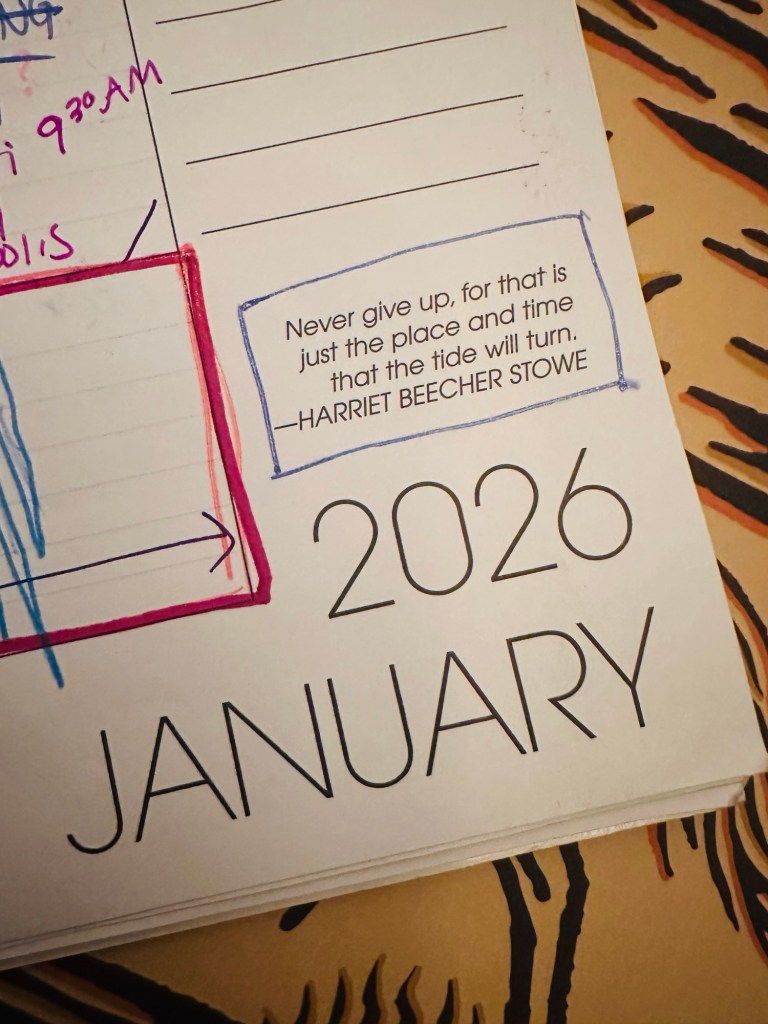 9³⁰ AM
Never give up, for that is
just the place and time
that the tide will turn.
—HARRIET BEECHER STOWE
2026
JANUARY